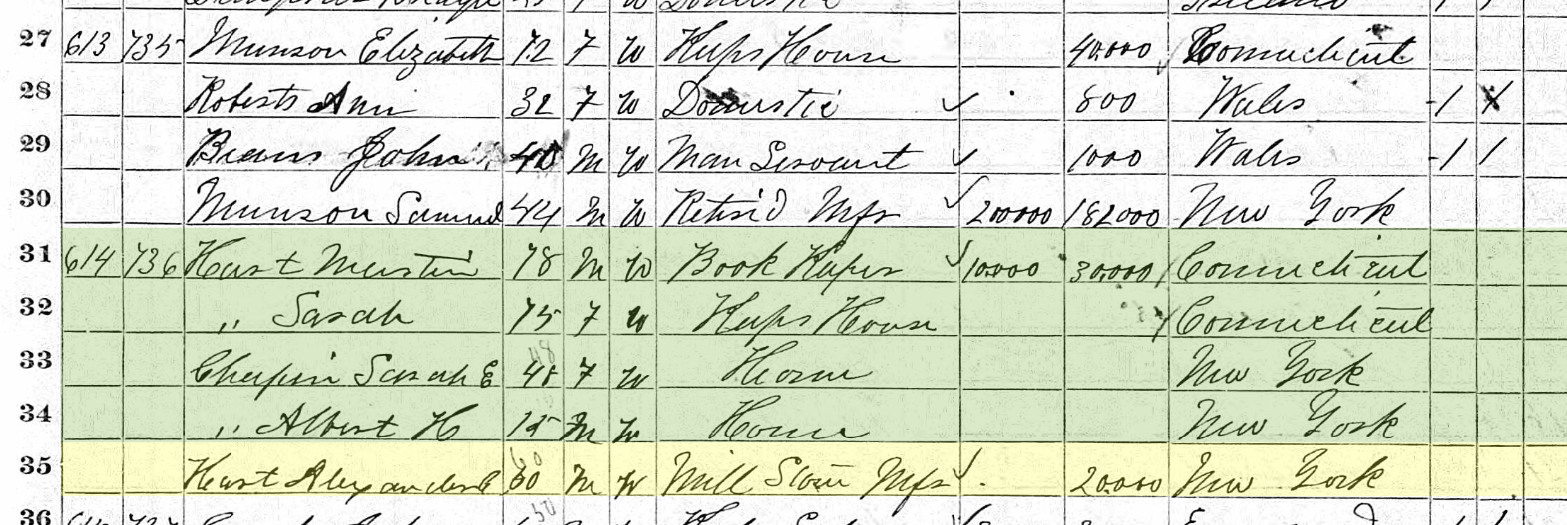 27 613 735 Munson Elizabeth 72 F W Keeps House 40,000 Connecticut
28 Roberts Ann 32 F W Domestic 800 Wales 1
29 John 40 M W Man Servant 1000 Wales 1 1
30 Munson Samuel 44 M W Retir'd Mfr 200000 182000 New York
31 614 736 Hart Martin 78 M W Book Keeper 10000 30,000 1 Connecticut
32 ,, Sarah 75 F W Keeps House 1 Connecticut
33 Chapin Sarah E 48 F W Home New York
34 ,, Albert H M W Home New York
35 Hart Alexander 60 M W Mill Stone Mfr 20,000 New York
36